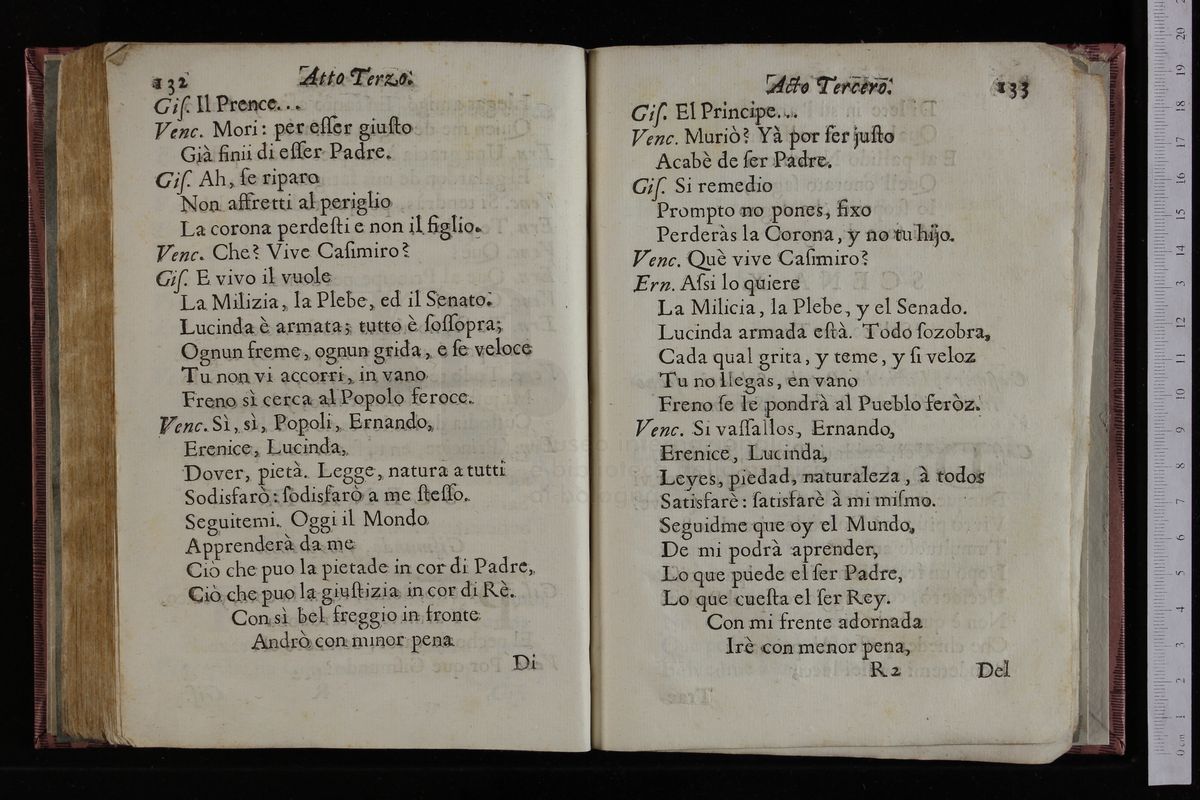 132
Atto Terzo.
Giſ. Il Prence...
Venc. Mori: per eſſer giuſto
Già finii di eſſer Padre.
Giſ. Ah, ſe riparo
Non affretti al periglio
La corona perdeſti e non il figlio.
Venc. Che? Vive Caſimiro?
Giſ. E vivo il vuole
La Milizia, la Plebe, ed il Senato.
Lucinda è armata; tutto è ſoſſopra;
Ognun freme, ognun grida, e ſe veloce
Tu non vi accorri, in vano
Freno si cerca al Popolo feroce.
Venc. Sì, sì, Popoli, Ernando,
Erenice, Lucinda,
Dover, pietà. Legge, natura a tutti
Sodisfarò: ſodisfarò a me ſteſſo.
Seguitemi. Oggi il Mondo
Apprenderà da me
Ciò che puo la pietade in cor di Padre,
Ciò che puo la giuſtizia in cor di Rè.
Con sì bel freggio in fronte
Andrò con minor pena
Di
Acto Tercero.
133
Giſ. El Principe...
Venc. Muriò? Yà por ſer juſto
Acabè de ſer Padre.
Giſ. Si remedio
Prompto no pones, fixo
Perderàs la Corona, y no tu hijo.
Venc. Què vive Caſimiro?
Ern. Aſsi lo quiere
La Milicia, la Plebe, y el Senado.
Lucinda armada eſtà. Todo ſozobra,
Cada qual grita, y teme, y ſi veloz
Tu no llegas, en vano
Freno ſe le pondrà al Pueblo feròz.
Venc. Si vaſſallos, Ernando,
Erenice, Lucinda,
Leyes, piedad, naturaleza, à todos
Satisfarè: ſatisfarè à mi miſmo.
Seguidme que oy el Mundo,
De mi podrà aprender,
Lo que puede el ſer Padre,
Lo que cueſta el ſer Rey.
Con mi frente adornada
Irè con menor pena,
R 2
Del